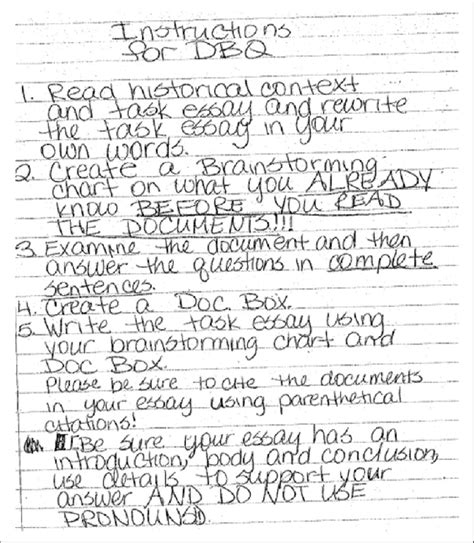 Instructions
for DBQ
1. Read historical context
and task essay and rewrite
the task essay in your
own words.
2. Create a Brainstorming
chart on what you ALREADY
know BEFORE YOU READ
THE DOCUMENTS!!!
3. Examine the document and then
answer the questions in complete
sentences.
4. Create a Doc Box.
5. Write the task essay using
your brainstorming chart and
DOC BOX.
Please be sure to cite the documents
in your essay using parenthetical
citations!
Be sure your essay has an
introduction, body and conclusion,
use details to support your
answer AND DO NOT USE
PRONOUNS!).